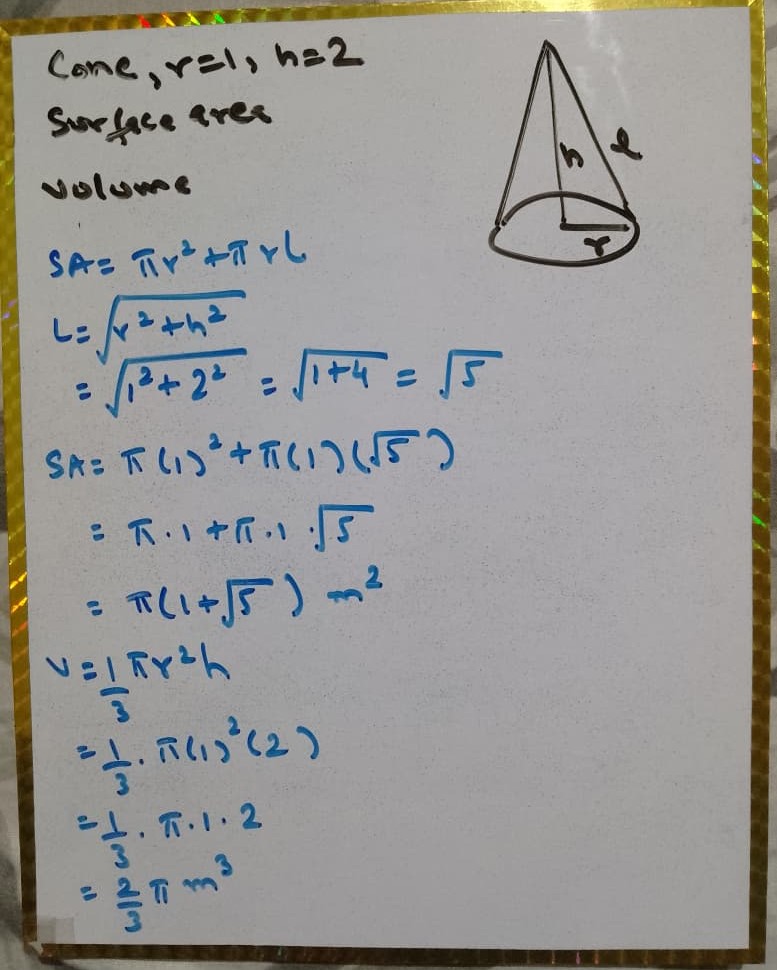 Cone, r=1, h=2
Surface area
Volume
h
l
r
SA= πr²+πrL
L= √(r²+h²)
= √(1²+2²) = √(1+4) = √5
SA= π(1)²+π(1)(√5)
= π·1+π·1·√5
= π(1+√5) m²
V=1/3 πr²h
=1/3·π(1)²(2)
=1/3·π·1·2
=2/3 π m³